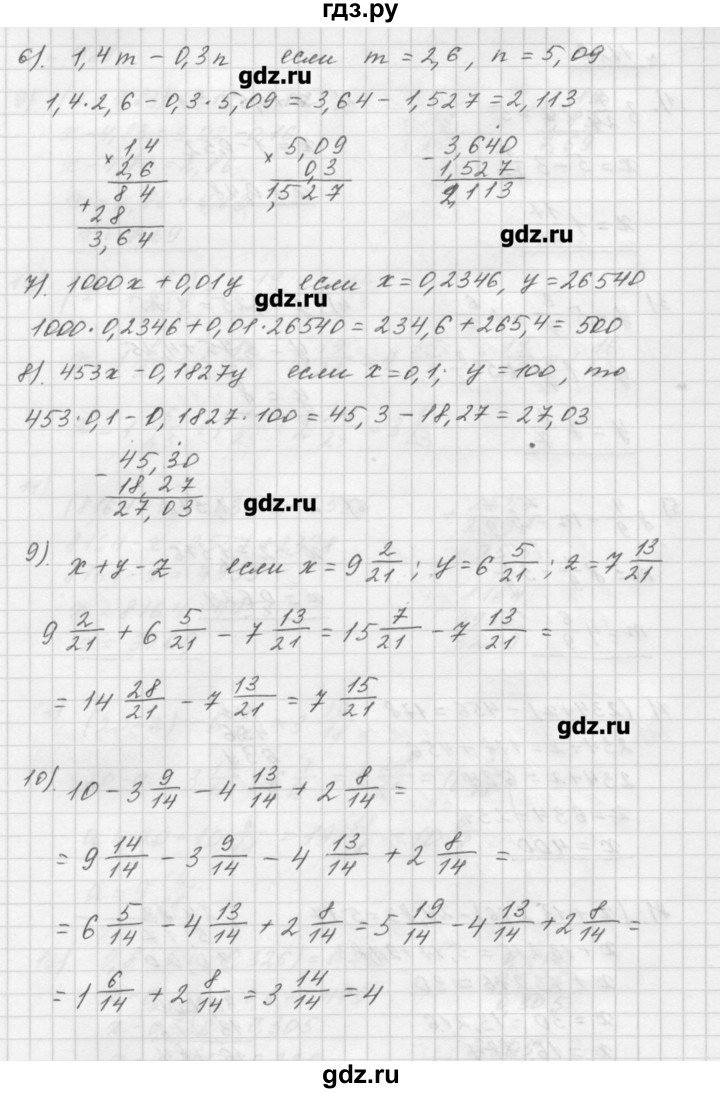 гдз.ру
6). 1,4m − 0,3n если m = 2,6, n = 5,09
gdz.ru
1,4·2,6 − 0,3·5,09 = 3,64 − 1,527 = 2,113
× 1,4 × 5,09 − 3,640
2,6 0,3 1,527
84 1,527 2,113
+ 28
3,64
gdz.ru
7). 1000x + 0,01y если x = 0,2346, y = 26540
gdz.ru
1000·0,2346 + 0,01·26540 = 234,6 + 265,4 = 500
8). 453x − 0,1827y если x = 0,1; y = 100, то
453·0,1 − 0,1827·100 = 45,3 − 18,27 = 27,03
− 45,30
18,27
27,03
gdz.ru
9). x + y − z если x = 9 2/21; y = 6 5/21; z = 7 13/21
9 2/21 + 6 5/21 − 7 13/21 = 15 7/21 − 7 13/21 =
= 14 28/21 − 7 13/21 = 7 15/21
gdz.ru
10). 10 − 3 9/14 − 4 13/14 + 2 8/14 =
= 9 14/14 − 3 9/14 − 4 13/14 + 2 8/14 =
= 6 5/14 − 4 13/14 + 2 8/14 = 5 19/14 − 4 13/14 + 2 8/14 =
= 1 6/14 + 2 8/14 = 3 14/14 = 4
gdz.ru